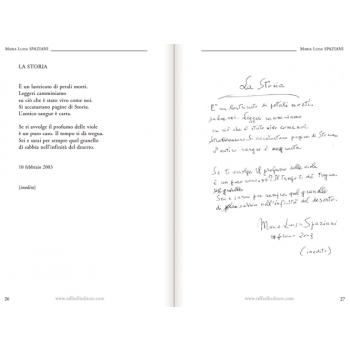 Maria Luisa SPAZIANI
LA STORIA
È un lastricato di petali morti.
Leggeri camminiamo
su ciò che è stato vivo come noi.
Si accatastano pagine di Storia.
L'antico sangue è carta.
Se ti avvolge il profumo delle viole
è un puro suono. Il tempo ti dà tregua.
Sei e sarai per sempre quel granello
di sabbia nell'infinità del deserto.
10 febbraio 2003
(inedito)
26
www.raffaellieditore.com
Maria Luisa SPAZIANI
La Storia
È un lastricato di petali morti.
Leggeri camminiamo
su ciò che è stato vivo come noi.
pagine di Storia
L'antico sangue è carta.
Se ti avvolge il profumo delle viole
è un puro suono. Il tempo ti dà tregua
Sei e sarai per sempre quel granello
di sabbia nell'infinità del deserto.
Maria Luisa Spaziani
2003
(inedito)
www.raffaellieditore.com
27